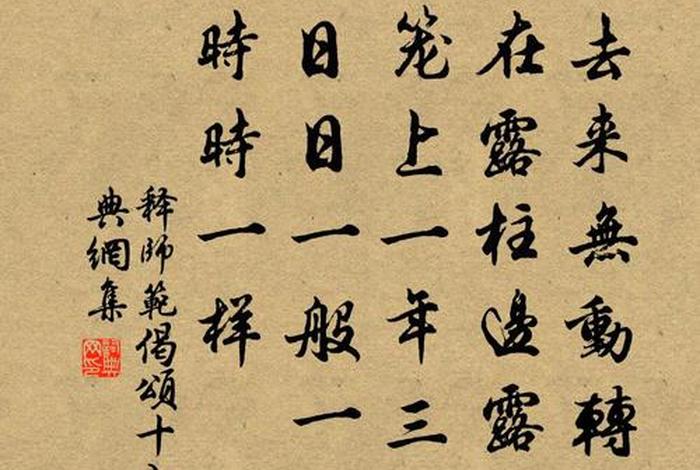 去来無動轉
在露柱邊露
笼上一年三
日日一般一
時時一样
释師範偈頌十
典網集
詞典
网印